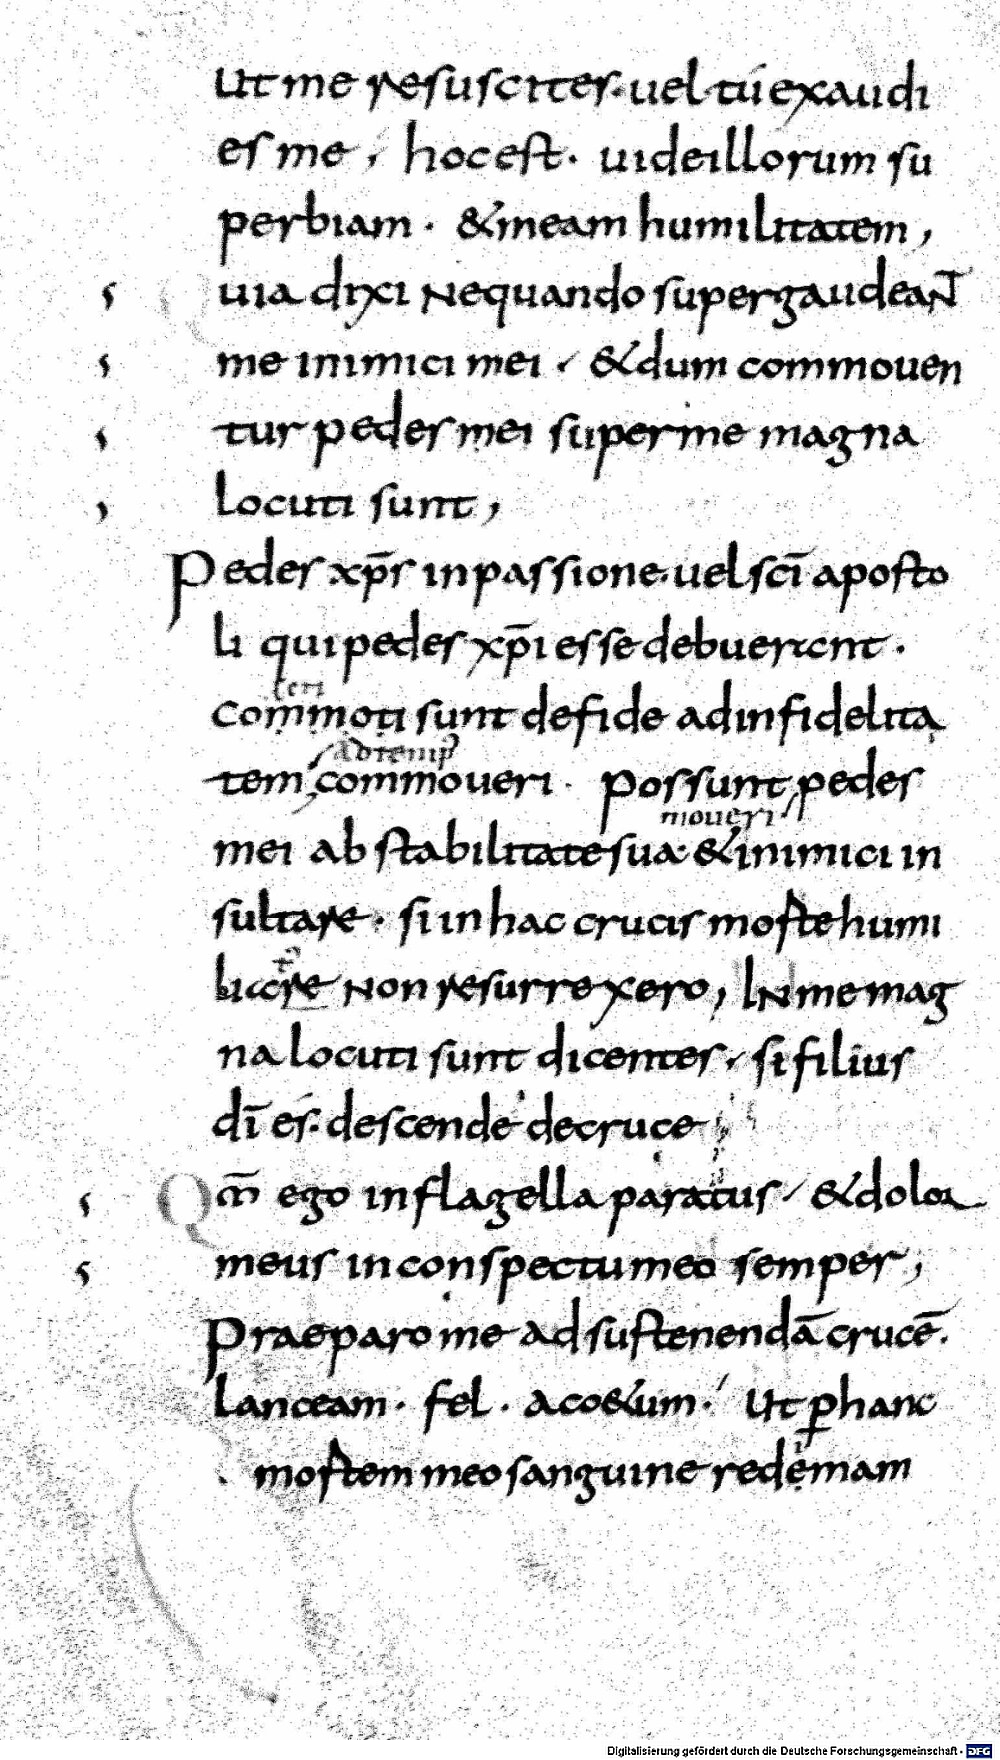 Ut me resuscites. uel tú exaudi
es me, hoc est. uide illorum su
perbiam. & meam humilitatem,
Quia dixi nequando supergaudeant
me inimici mei, & dum commouen
tur pedes mei super me magna
locuti sunt,
Pedes xp̄s in passione. uel sc̄i aposto
li qui pedes xp̄i esse debuerant.
teri
Commoti sunt de fide ad infidelita
ad temp
tem, commoueri. Possunt pedes
moueri
mei ab stabilitate sua. & inimici in
sultare. si in hac crucis morte humi
non resurrexero, In me mag
na locuti sunt dicentes, si filius
dī es. descende de cruce
Qm̄ ego in flagella paratus, & dolor
meus in conspectu meo semper,
Praeparo me ad sustenendā crucē.
lanceam. fel. aco&um. Ut p̱ hanc
mortem meo sanguine redemam
Digitalisierung gefördert durch die Deutsche Forschungsgemeinschaft - DFG